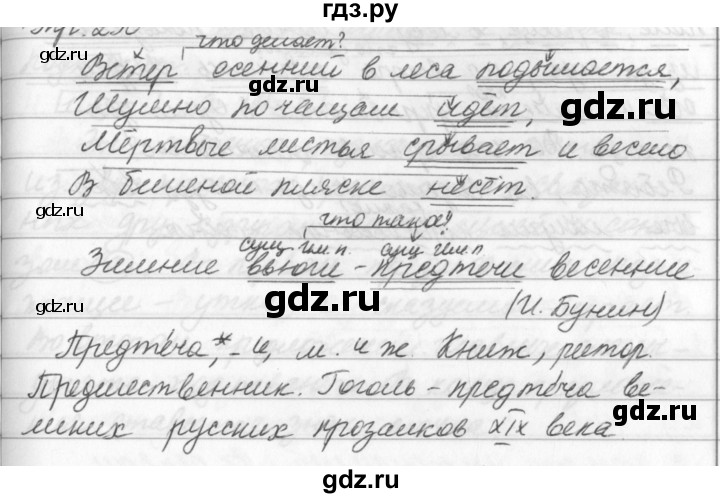 гдз.ру
Упр. 230
что делает?
Ветер осенний в леса подымается,
Шумно по чащам идёт,
Мёртвые листья срывает и весело
В бешеной пляске несёт.
что такое?
сущ. им. п. сущ. им. п.
Зимние вьюги – предтечи весенние
(И. Бунин)
Предтеча,* -и, м. и ж. Книж., ритор.
Предшественник. Гоголь – предтеча ве-
ликих русских прозаиков XIX века
gdz.ru
gdz.ru
gdz.ru
gdz.ru
gdz.ru
gdz.ru
gdz.ru
gdz.ru
gdz.ru
gdz.ru
gdz.ru